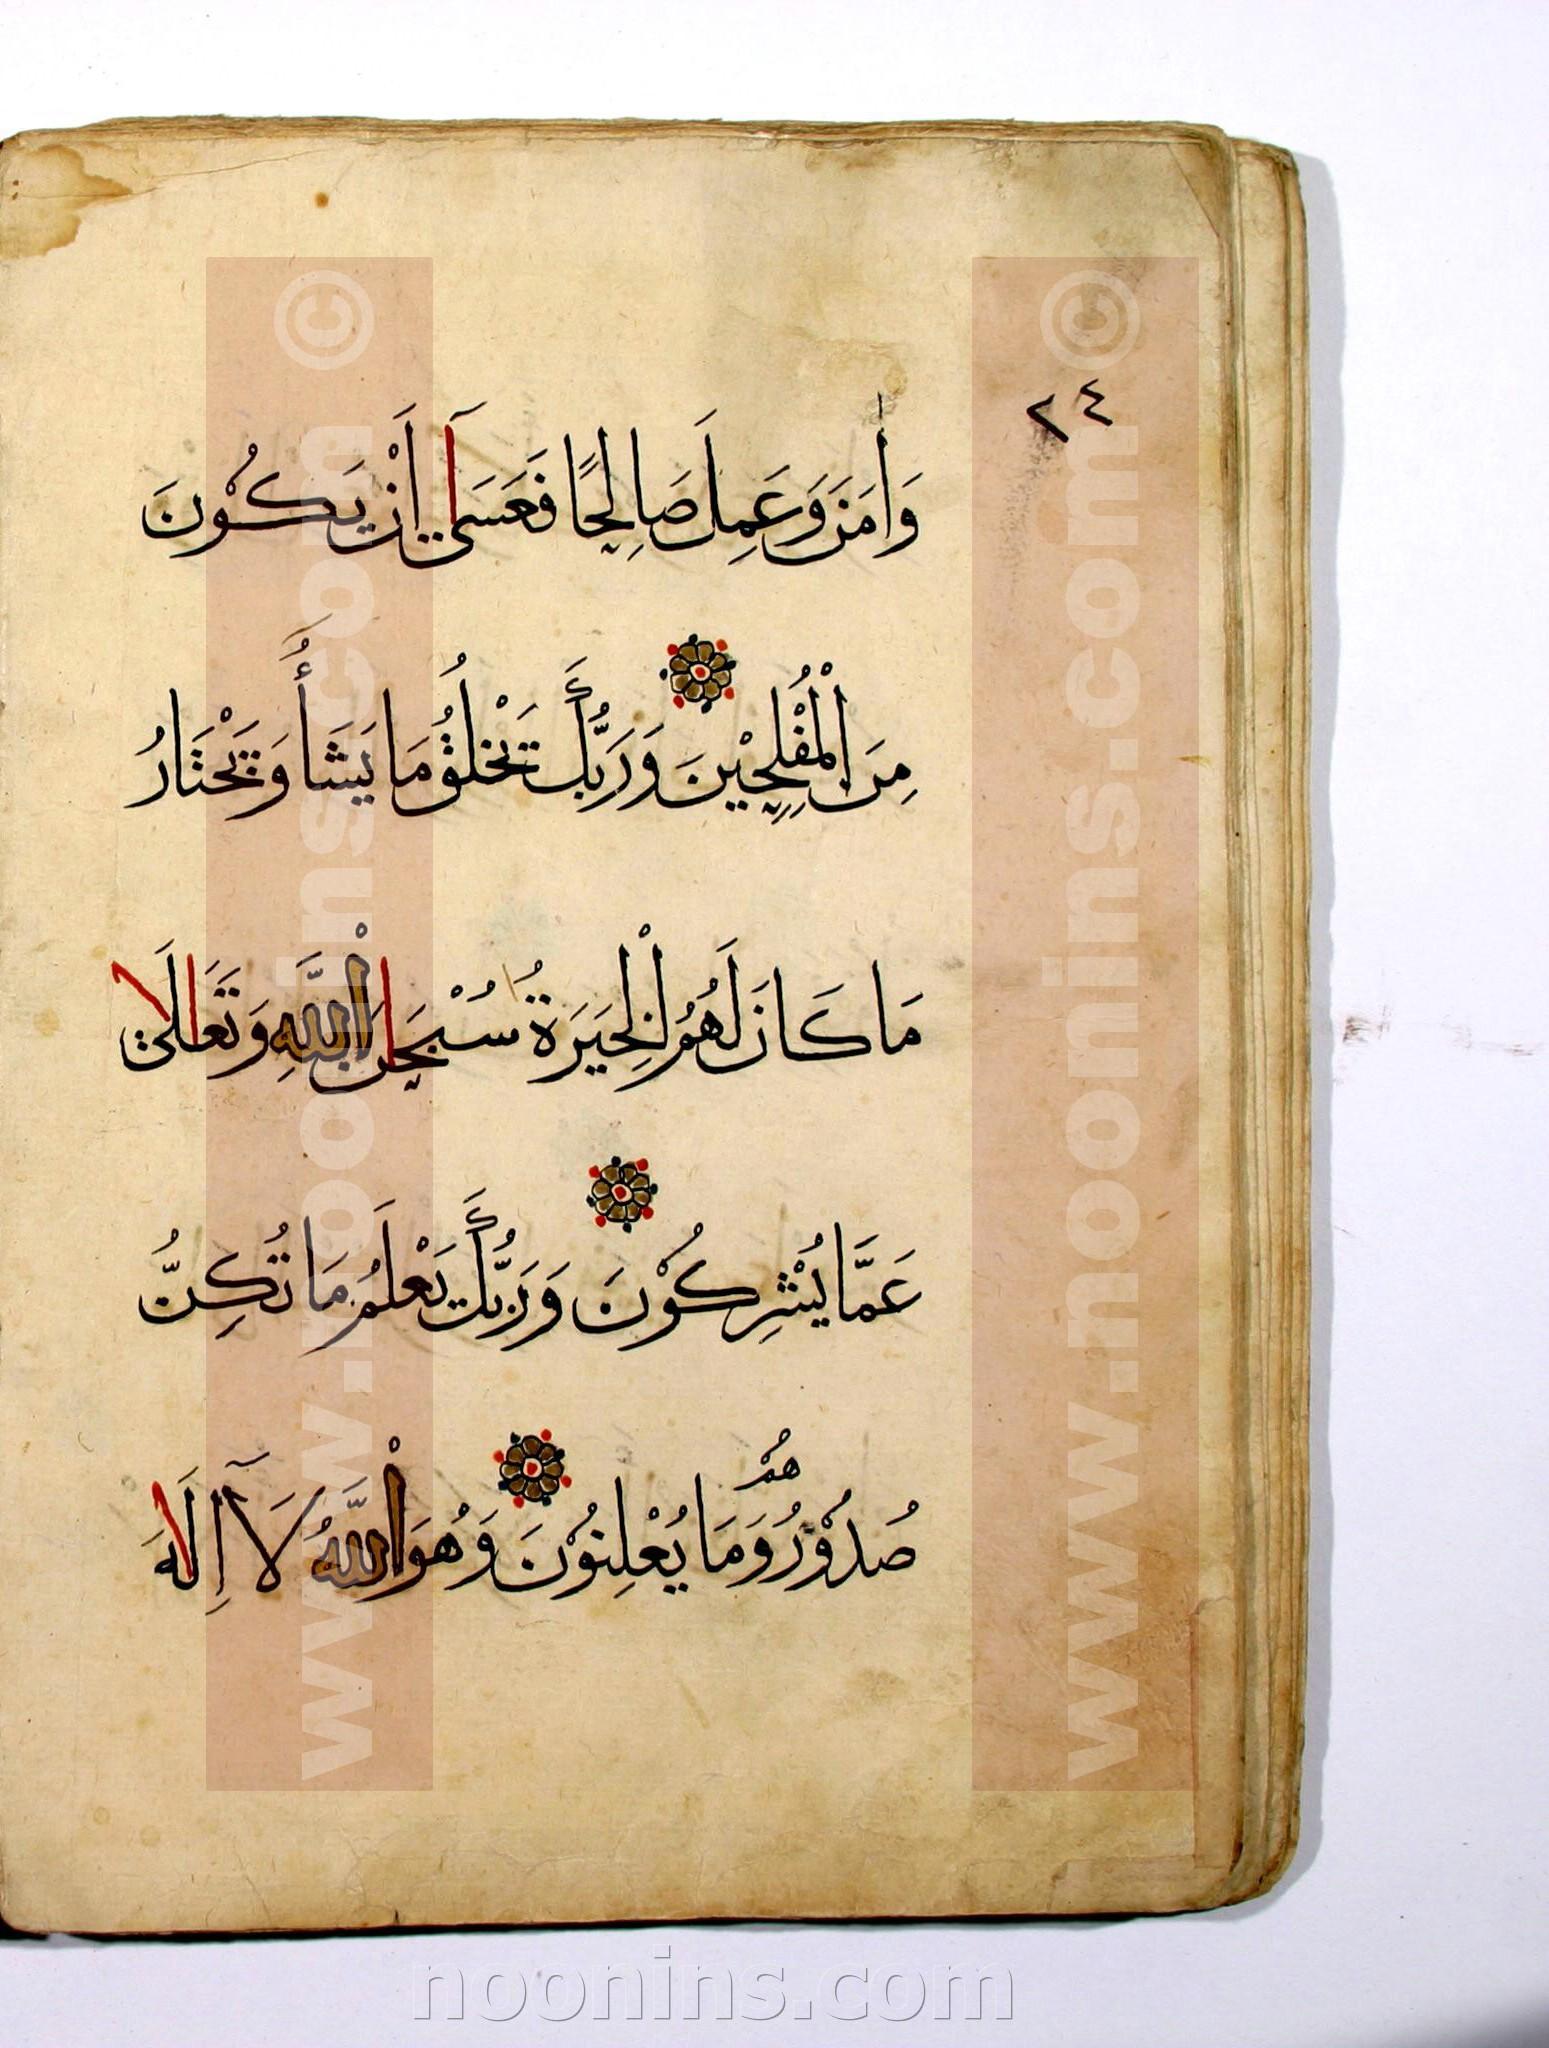 ٢٤
وَاٰمَنَ وَعَمِلَ صَالِحًا فَعَسَىٰٓ أَنْ يَكُوْنَ
مِنَ الْمُفْلِحِيْنَ وَرَبُّكَ يَخْلُقُ مَا يَشَأُ وَيَخْتَارُ
مَا كَانَ لَهُمُ الْخِيَرَةُ سُبْحَٰنَ اللَّهِ وَتَعَالَىٰ
عَمَّا يُشْرِكُوْنَ وَرَبُّكَ يَعْلَمُ مَا تُكِنُّ
صُدُوْرُهُمْ وَمَا يُعْلِنُوْنَ وَهُوَ اللَّهُ لَآ اِلَٰهَ
www.noonins.com ©
www.noonins.com ©
noonins.com